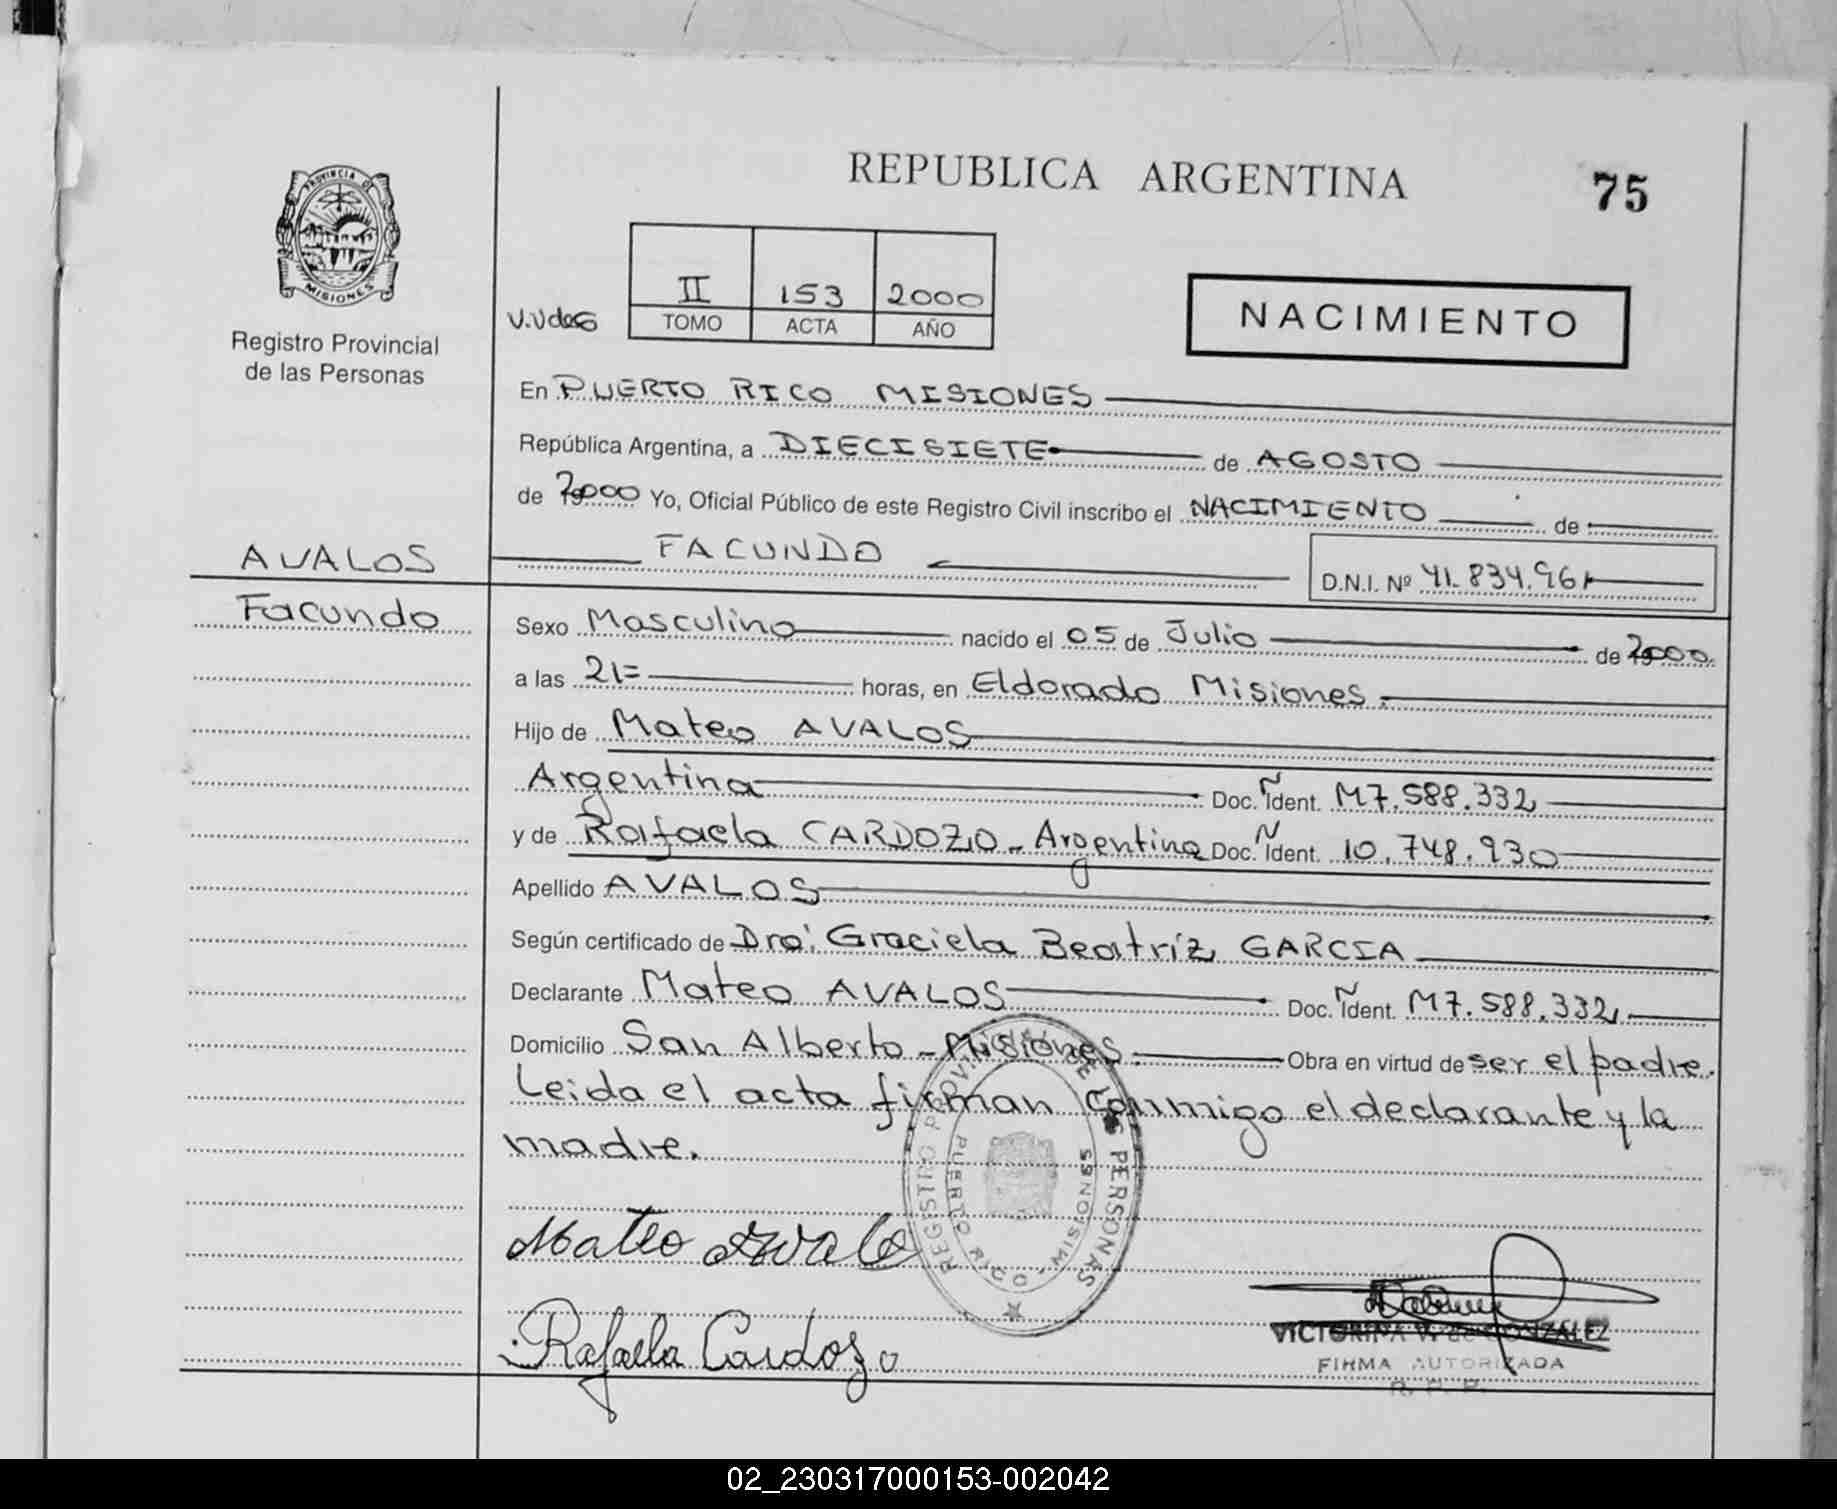 REPUBLICA ARGENTINA
75
PROVINCIA DE
MISIONES
Registro Provincial
de las Personas
II 153 2000
TOMO ACTA AÑO
NACIMIENTO
En PUERTO RICO MISIONES
República Argentina, a DIECISIETE de AGOSTO
de 2000 Yo, Oficial Público de este Registro Civil inscribo el NACIMIENTO de
AVALOS
FACUNDO
D.N.I. Nº 41.834.961
Facundo
Sexo Masculino nacido el 05 de Julio de 2000
a las 21= horas, en Eldorado Misiones.
Hijo de Mateo AVALOS
Argentina Doc. Ident. M7.588.332
y de Rafaela CARDOZO - Argentina Doc. Ident. 10.748.930
Apellido AVALOS
Según certificado de Dra. Graciela Beatríz GARCIA
Declarante Mateo AVALOS Doc. Ident. M7.588.332
Domicilio San Alberto - Misiones. Obra en virtud de ser el padre.
Leida el acta firman conmigo el declarante y la
madre.
REGISTRO PROVINCIAL DE LAS PERSONAS
PUERTO RICO - MISIONES
Mateo Avalo
Rafaela Cardozo
VICTORINA V. de GONZALEZ
FIRMA AUTORIZADA
R. P. P.
02_230317000153-002042